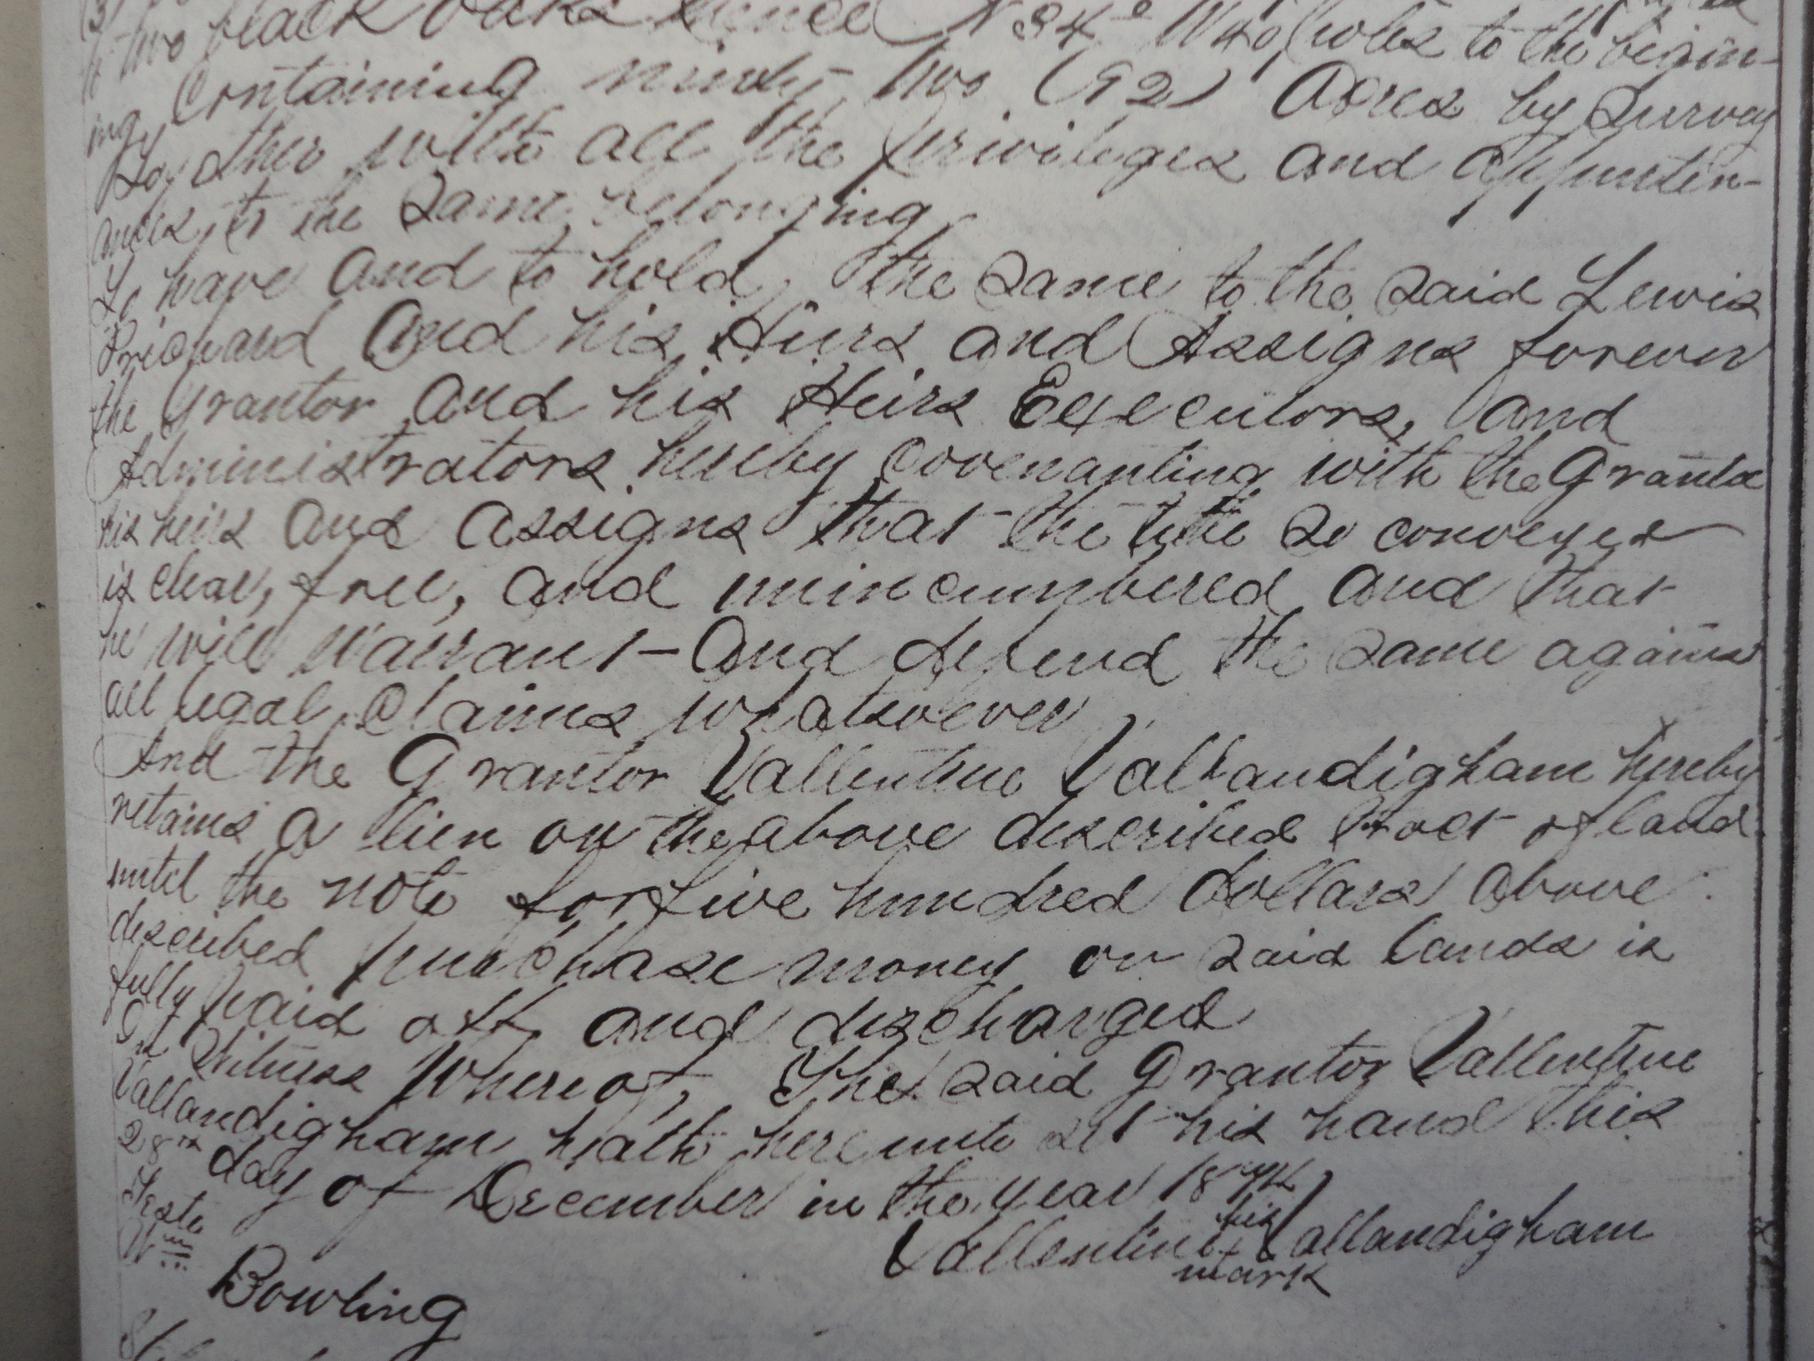 two black oaks thence N 34° W 40 poles to the begin-
ing Containing ninty two (92) Acres by Survey
Together with all the privileges and appurten-
ances to the same belonging
To have and to hold, the same to the said Lewis
Prichard and his Heirs and Assigns forever
the Grantor and his Heirs Executors, and
Administrators hereby covenanting with the Grantee
his heirs and assigns that the title so conveyed
is clear, free, and unincumbered and that
he will Warrant and defend the same against
all legal claims whatsoever
And the Grantor Vallentine Vallandigham hereby
retains a lien on the above described tract of land
until the note for five hundred dollars above
described purchase money on said lands is
fully paid off and discharged
In Witness Whereof, The said Grantor Vallentine
Vallandigham hath hereunto set his hand this
28th day of December in the year 18
Teste
Vallentine his x mark Vallandigham
Wm
Bowling